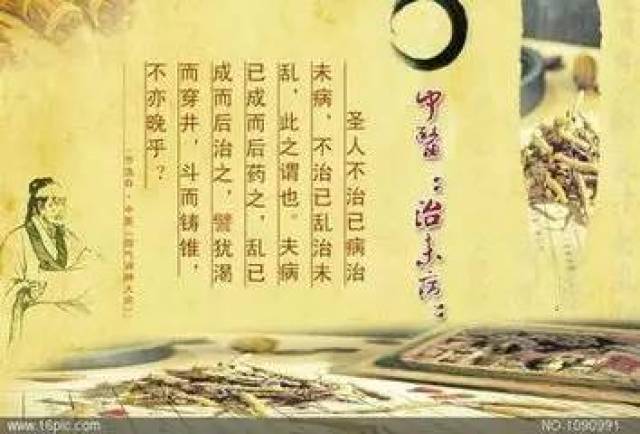 中醫“治未病”
圣人不治已病治
未病，不治已乱治未
乱，此之谓也。夫病
已成而后药之，乱已
成而后治之，譬犹渴
而穿井，斗而铸锥，
不亦晚乎？
www.16pic.com
NO:1090991